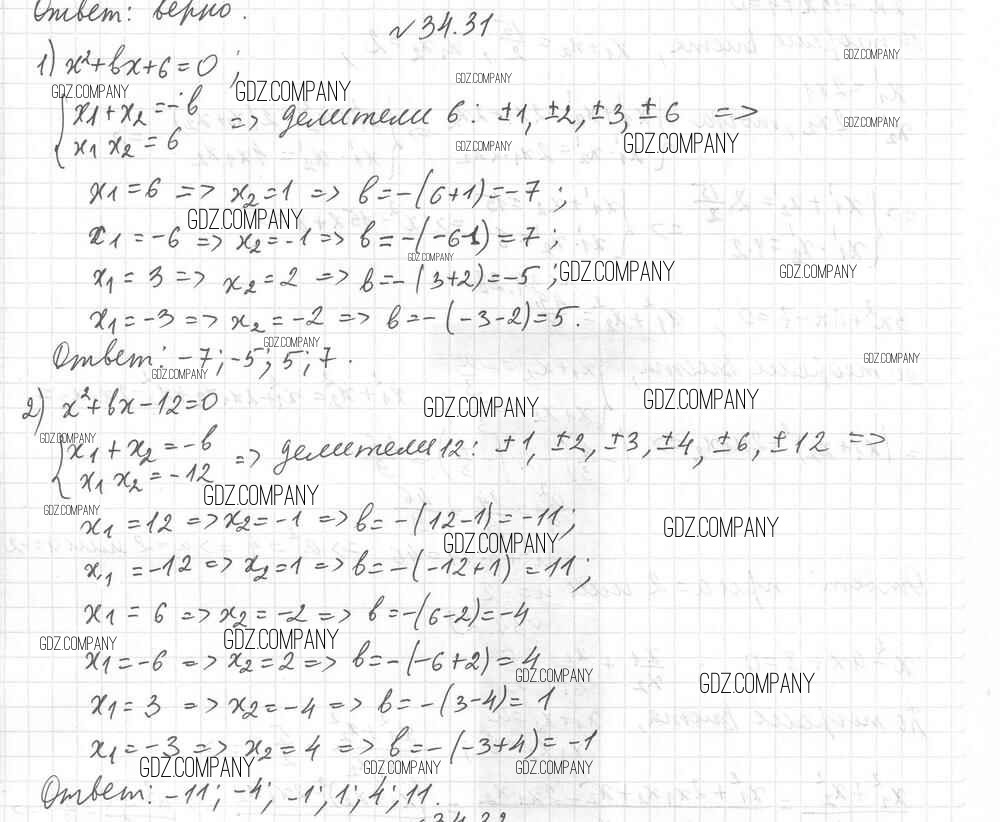 Ответ: верно.
№34.31
1) x²+bx+6=0;
{ x1+x2=-b
x1 x2=6 => делители 6: ±1, ±2, ±3, ±6 =>
x1=6 => x2=1 => b=-(6+1)=-7;
x1=-6 => x2=-1 => b=-(-6-1)=7;
x1=3 => x2=2 => b=-(3+2)=-5;
x1=-3 => x2=-2 => b=-(-3-2)=5.
Ответ: -7; -5; 5; 7.
2) x²+bx-12=0
{ x1+x2=-b
x1 x2=-12 => делители 12: ±1, ±2, ±3, ±4, ±6, ±12 =>
x1=12 => x2=-1 => b=-(12-1)=-11;
x1=-12 => x2=1 => b=-(-12+1)=11;
x1=6 => x2=-2 => b=-(6-2)=-4
x1=-6 => x2=2 => b=-(-6+2)=4
x1=3 => x2=-4 => b=-(3-4)=1
x1=-3 => x2=4 => b=-(-3+4)=-1
Ответ: -11; -4; -1; 1; 4; 11.
GDZ.COMPANY